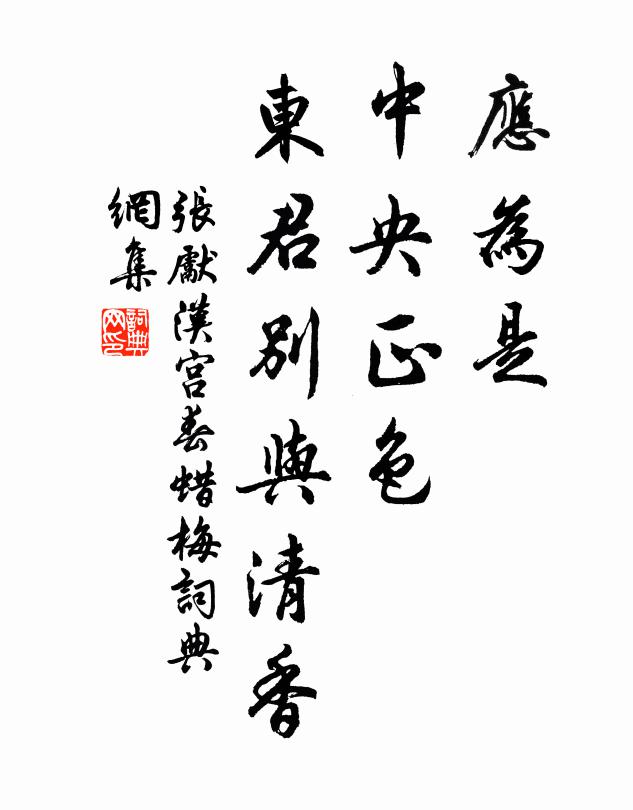 應為是
中央正色
東君別與清香
張獻漢宮春蜡梅詞典
網集
詞典網印